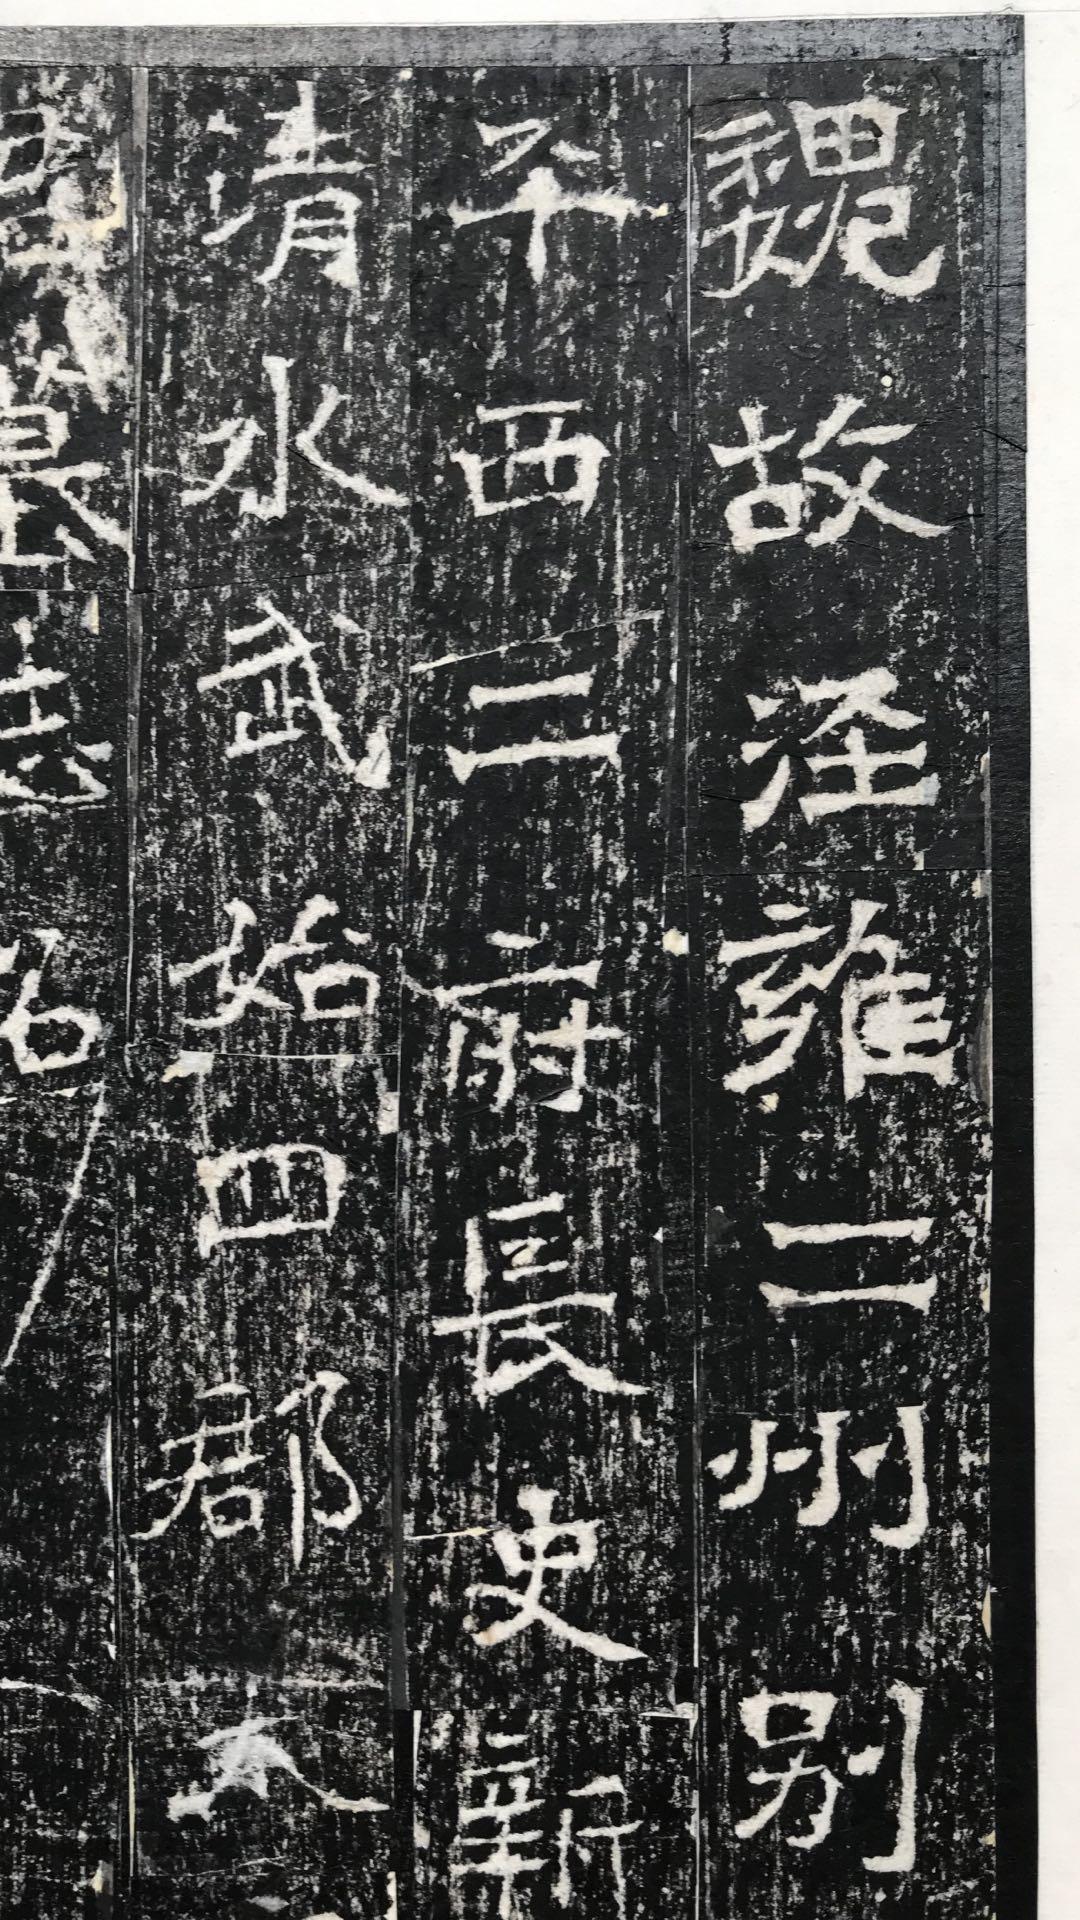 魏故涇雍二州別
平西二府長史新
清水武始四郡太
墓誌銘